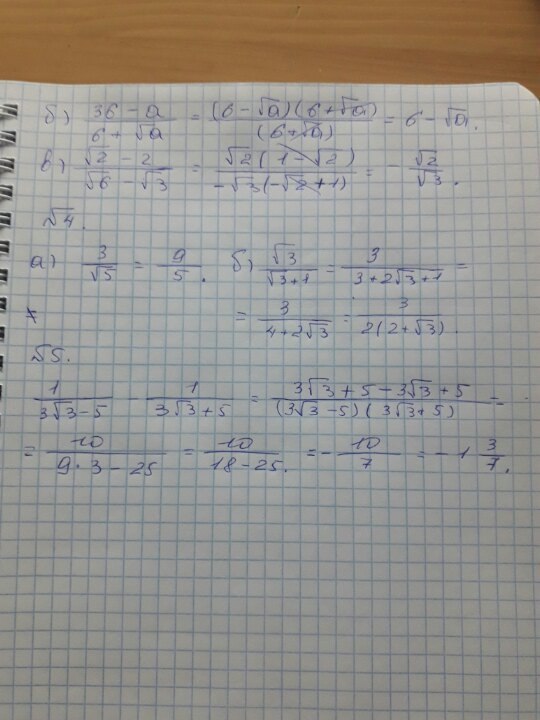 б) (36 - a)/(6 + √a) = (6 - √a)(6 + √a)/(6 + √a) = 6 - √a.
в) (√2 - 2)/(√6 - √3) = √2(1 - √2)/(-√3(-√2 + 1)) = - √2/√3.
№4.
а) 3/√5 = 9/5. б) √3/(√3+1) = 3/(3+2√3+1) =
= 3/(4+2√3) = 3/(2(2+√3)).
№5.
1/(3√3-5) - 1/(3√3+5) = (3√3+5-3√3+5)/((3√3-5)(3√3+5)) =
= 10/(9·3-25) = 10/(18-25). = - 10/7 = -1 3/7.